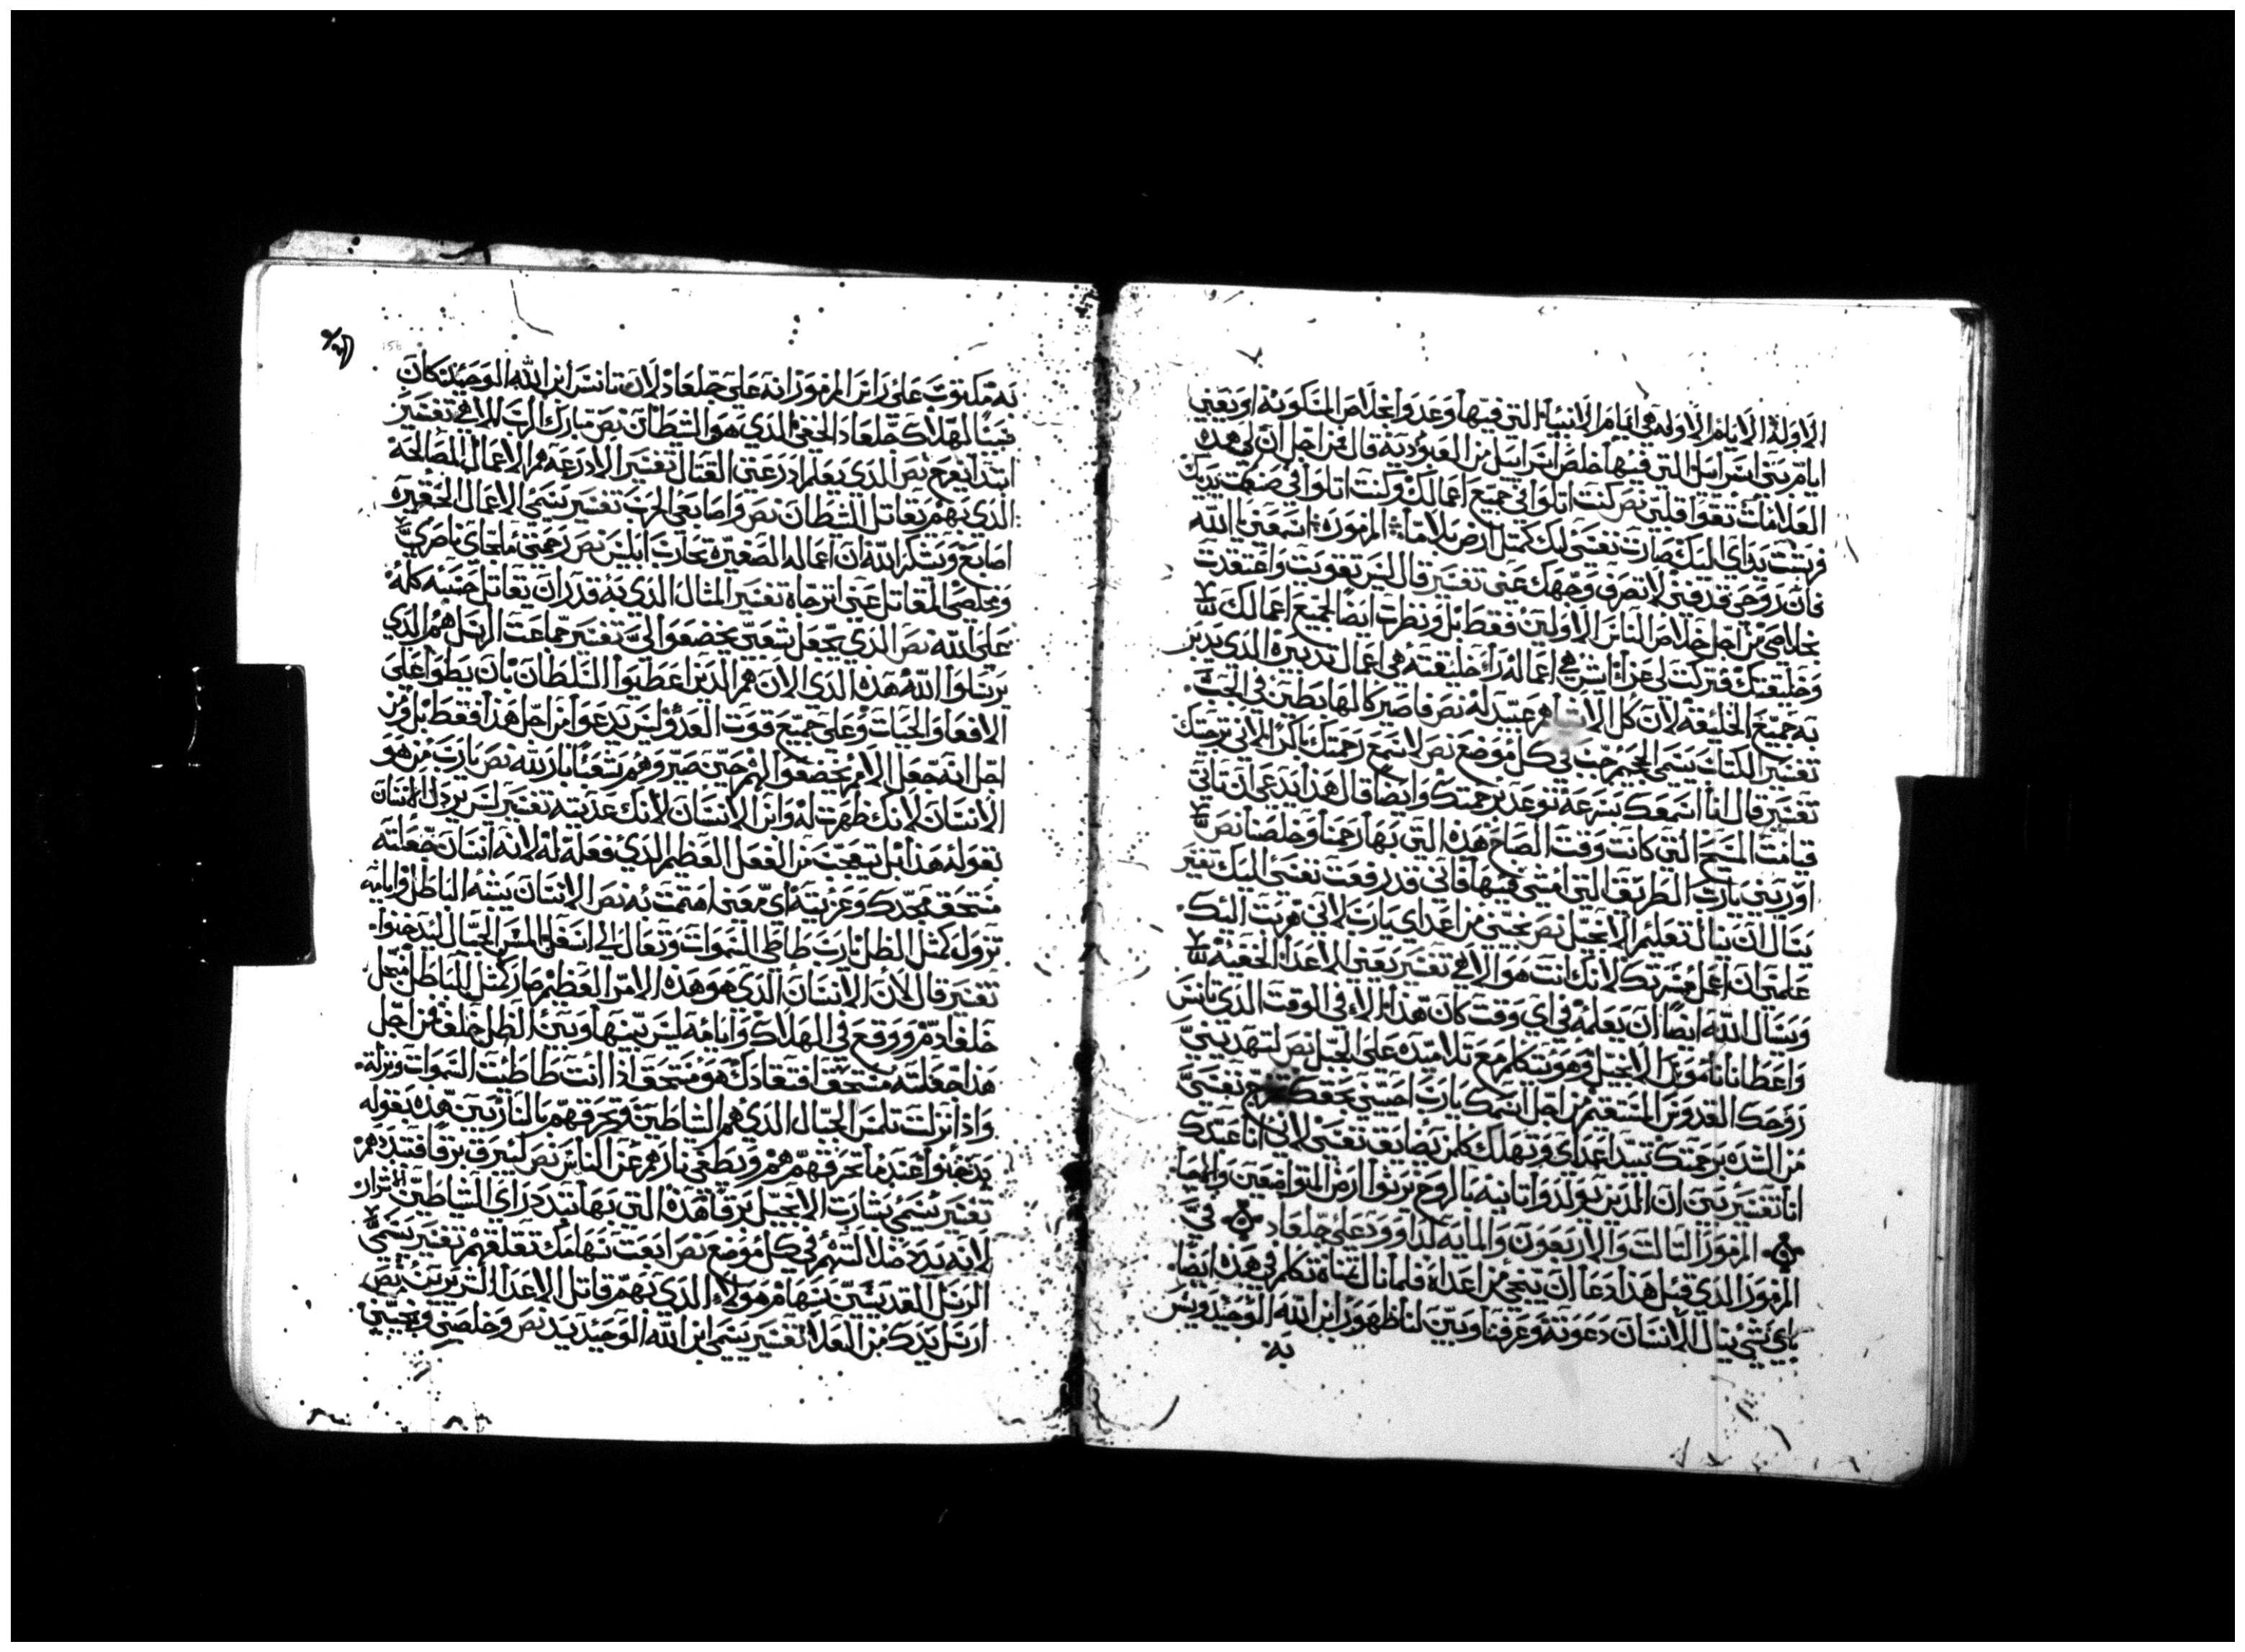 الاوله الايام الاوله هي ايام الانبياء التي فيها وعدوا بخلاص المسكونه او يعني
ايام بني اسراييل التي فيها خلص اسراييل من العبوديه قال من اجل ان لي هذه
العلامات تقوا قلبي نص كنت اتلوا في جميع اعمالك وكنت اتلوا في صنعت يديك
فرشت يداي اليك صارت نفسي لك كمثل ارض بلا ماء المزموره اسمعني يا الله
فان روحي قد فنى لا تصرف وجهك عني تفسير قال ليس تقويت واعتقدت
بخلاصي من اجل خلاص الناس الاولين فقط بل ونظرت ايضا لجميع اعمالك
وخليقتك فتركت لي عزا اش هي اعماله خليقته هي اعمال تدبيره الذي يدبر
به جميع الخليقه لان كل عبيد له نص فاصير كالهابطين في الجب
تفسير الكتاب يسمي الجحيم جب في كل موضع نص لاسمع رحمتك باكر لاني ترجيتك
تفسير قال لنا اسمعك بسرعه نوعد برحمتك وايضا قال هذا يدعي ان تاتي
قيامت المسيح التي كانت وقت الصباح هذه التي بها رحمنا وخلصنا نص
اوريني يارب الطريق التي امشي فيها فاني قد رفعت نفسي اليك تفسير
يسال ان ينال تعليم الانجيل نص نجيني من اعداي يارب لاني هربت اليك
علمني ان اعمل مسرتك لانك انت هو الاهي تفسير يعني الاعدا الخفيه
ويسال الله ايضا ان يعلمه في اي وقت كان هذا الا في الوقت الذي تانس
واعطانا ناموس الانجيل وهو يتكلم مع تلاميده على الجبل نص لتهديني
روحك القدوس المستقيم من اجل اسمك يارب احييني بحقك تخرج نفسي
من الشده برحمتك تبيد اعداي وتهلك كلمن يضايق نفسي لاني انا عبدك
انا تفسير يبين ان الذين يولدوا تانيه بالروح يرتوا ارض المتواضعين
المزمور التالت والاربعون والمايه لداوود على جلعاد في
المزمور الذي قبل هذا دعا ان ينجي من اعداه فلما نال تكلم في هده ايضا
باي شي ينال الانسان دعوته وعرفنا وبين لنا ظهور ابن الله الوحيد وليس
به
به مكتوب على راس المزمور انه على جلعاد لان تانس ابن الله الوحيد كان
سببا لهلاك جلعاد الخفي الذي هو الشيطان نص تبارك الرب الاهي تفسير
ابتدا يفرح نص الذي يعلم ادرعتي القتال تفسير الادرعه هم الاعمال الصالحه
الذي بهم يقاتل الشيطان نص واصابعي الحرب تفسير يسمي الاعمال الحقيره
اصابع ويشكر الله ان اعماله الصغيره تحارب ابليس نص رحمتي ملجاي ناصري
ومخلصي المقاتل عني اترجاه تفسير المثال الذي به قدر ان يقاتل حسبه كله
على الله نص الذي يجعل شعبي يخضعوا لي تفسير جماعت الرسل هم الذي
يرتلوا لله هذه الذي الان هم الذين اعطيوا السلطان بان يطوا على
الافعا والحيات وعلى جميع قوت العدو ليس يدعوا من اجل هذا فقط بل ومن
اجل انه جعل الامم يخضعوا لهم حين صيروهم شعبا باريته نص يارب من هو
الانسان لانك ظهرت له وابن الانسان لانك عديته تفسير ليس يردل الانسان
بقوله هذا بل يتعجب من الفعل العظيم الذي فعله له لانه انسان جعلته
مستحق مجدك وعزيته اي معني اهتممت به نص الانسان يشبه الباطل وايامه
تزول كمثل الظل يارب طاطي السموات وتعال الي اسفل المس الجبال ليدخنوا
تفسير قال لان الانسان الذي هو هده الامر العظيم صار كمثل الباطل
خلفا دم ووقع في الهلاك وايامه ليس بينها وبين الظل خلف فمن اجل
هذا جعلته مستحق افتقادك هو مستحق اذا انت طاطيت السموات ونزلت
واذا نزلت تلمس الجبال الذي هم الشياطين وتحرقهم بالنار يبين هذه بقوله
يدخنوا عندما تحرقهم هم وتطفي نارهم عن الناس نص لتبرق برقا فتبددهم
تفسير يسمي بشارت الانجيل برقا هذه التي بها تبدد دراي الشياطين الاشرار
لانه يبدد ضلالتهم في كل موضع نص ابعت سهامك تقلقهم تفسير يسمي
الرسل القديسين سهام هولاء الذي بهم قاتل الاعدا الشريرين نص
ارسل يدك من العلا تفسير يسمي ابن الله الوحيد يد نص وخلصني ونجيني